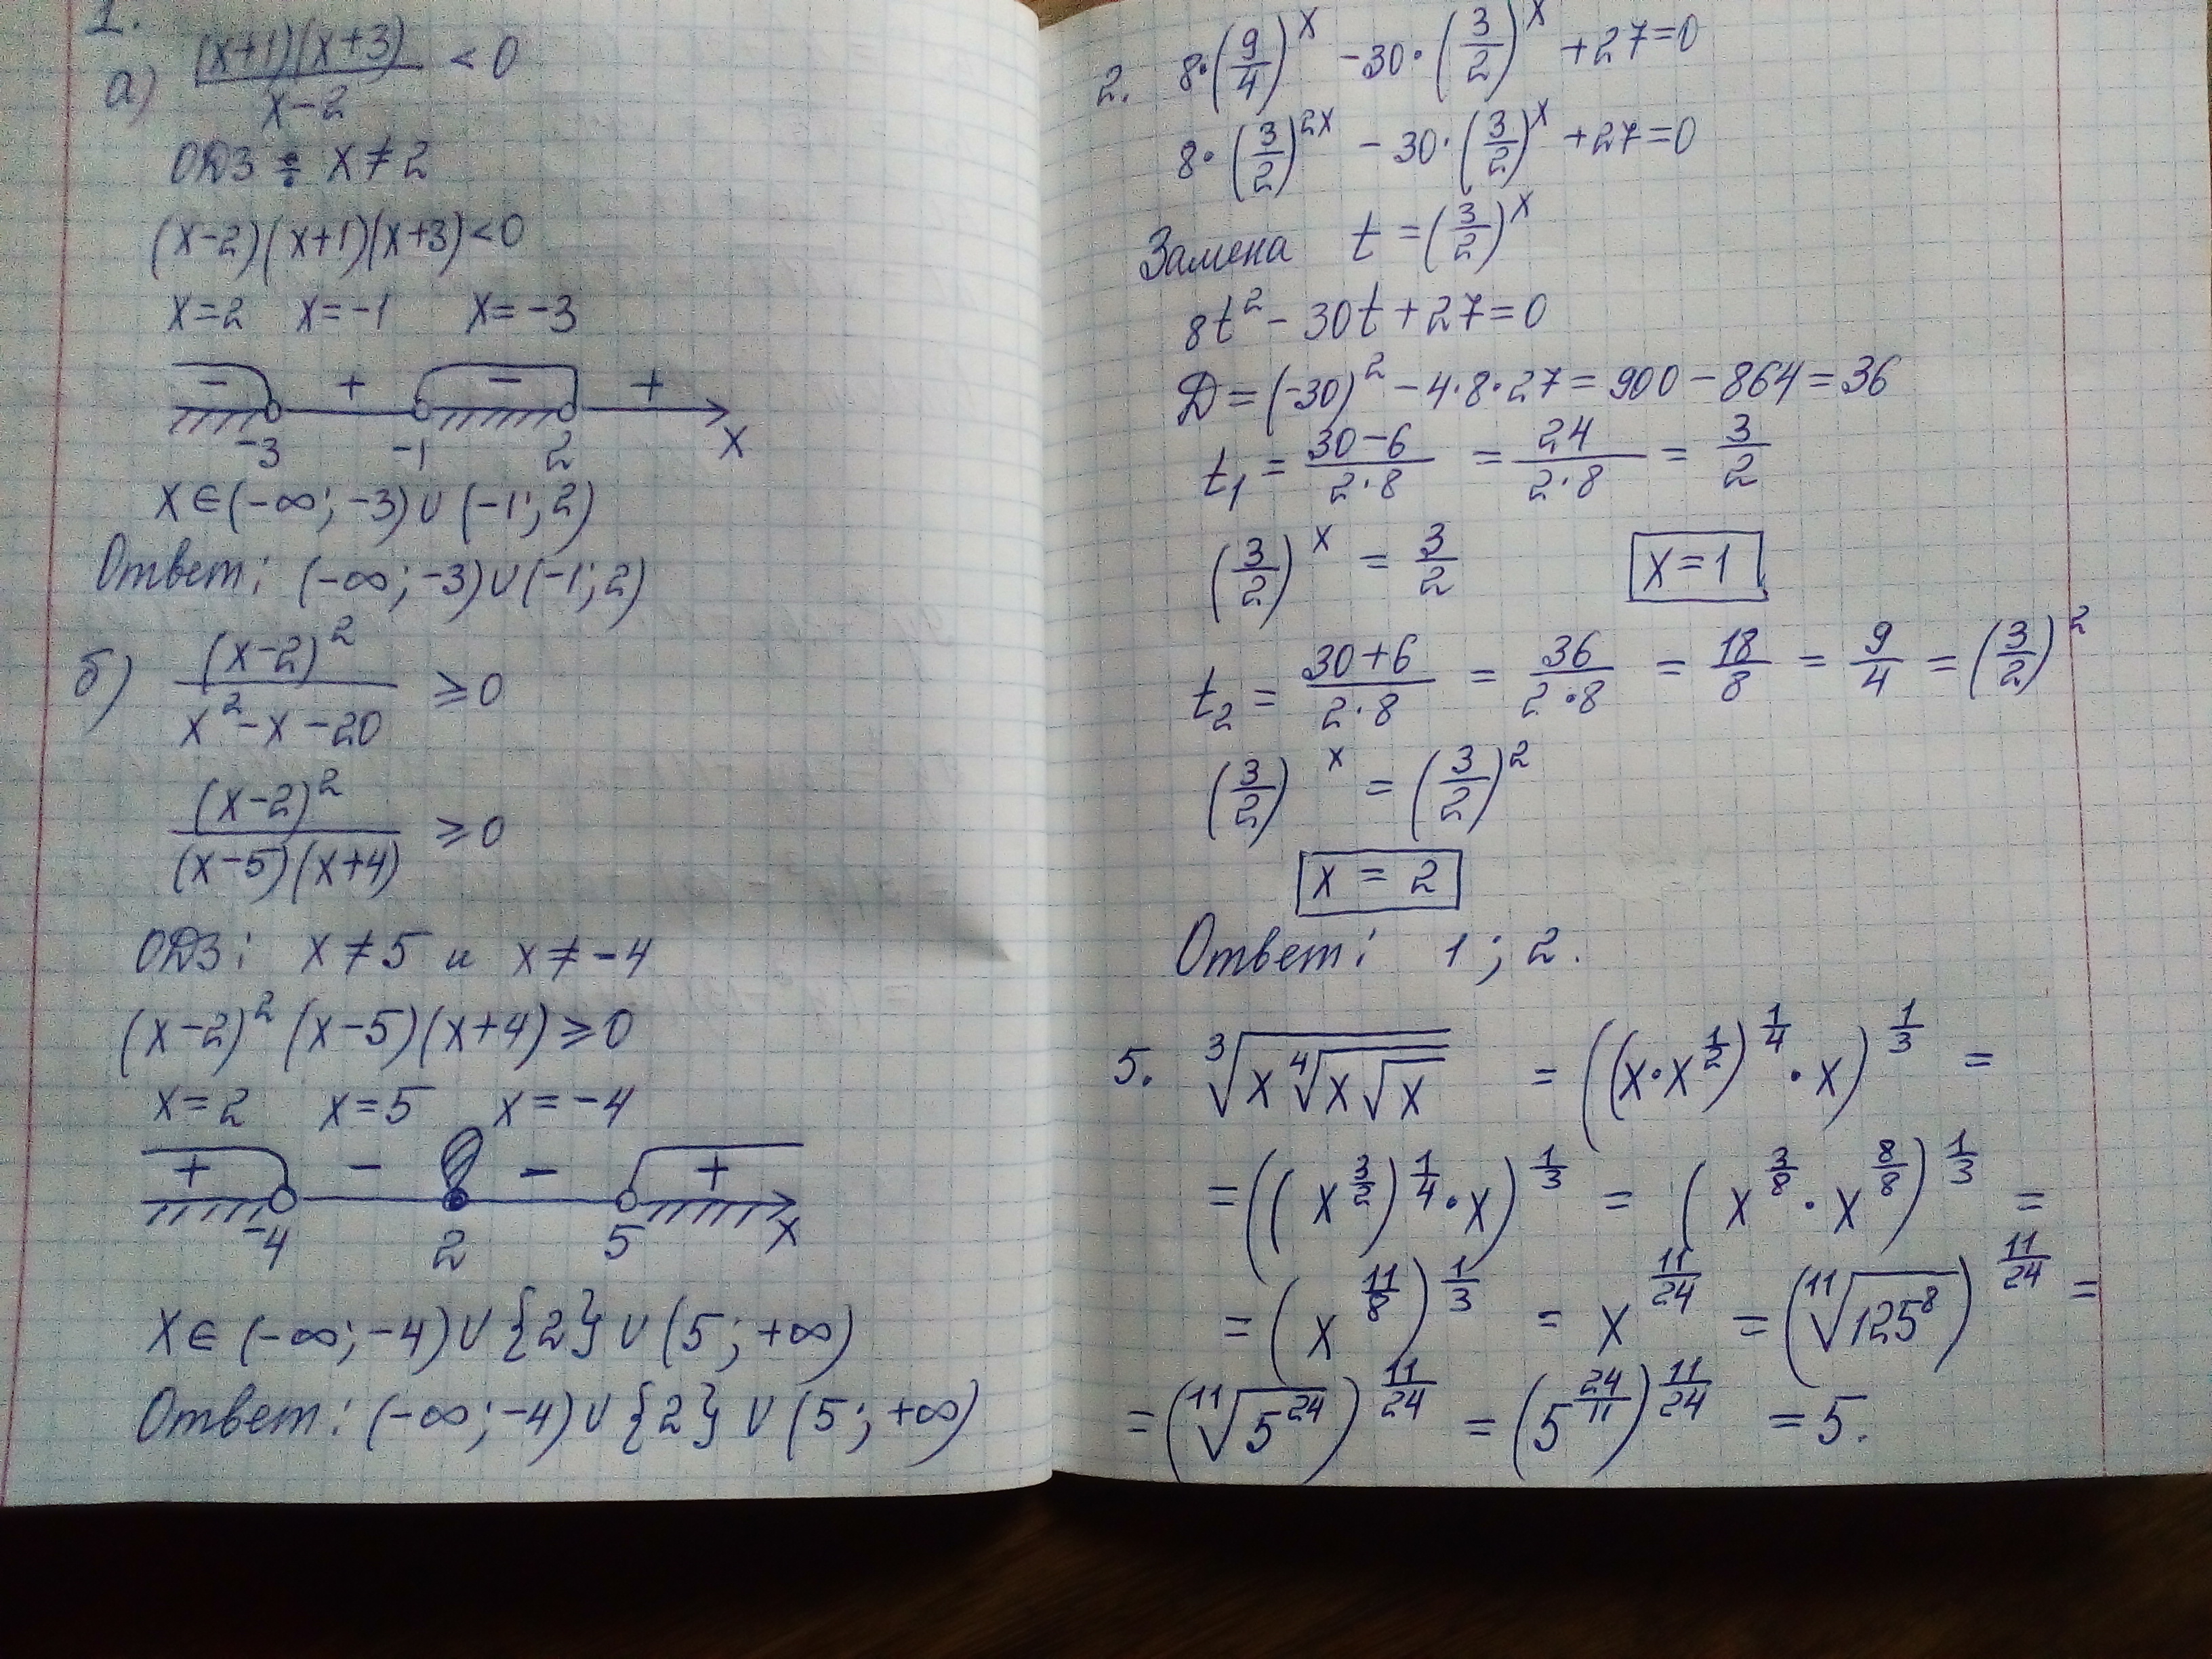 1.
а) (x+1)(x+3)/(x-2) < 0
ОДЗ: x ≠ 2
(x-2)(x+1)(x+3)<0
x=2 x=-1 x=-3
- + - +
-3 -1 2 x
x∈(-∞;-3)∪(-1;2)
Ответ: (-∞;-3)∪(-1;2)
б) (x-2)²/(x²-x-20) ≥0
(x-2)²/((x-5)(x+4)) ≥0
ОДЗ: x≠5 и x≠-4
(x-2)²(x-5)(x+4)≥0
x=2 x=5 x=-4
+ - - +
-4 2 5 x
x∈(-∞;-4)∪{2}∪(5;+∞)
Ответ: (-∞;-4)∪{2}∪(5;+∞)
2. 8·(9/4)^x -30·(3/2)^x +27=0
8·(3/2)^(2x) -30·(3/2)^x +27=0
Замена t=(3/2)^x
8t²-30t+27=0
D=(-30)²-4·8·27=900-864=36
t₁ = (30-6)/(2·8) = 24/(2·8) = 3/2
(3/2)^x = 3/2 x=1
t₂ = (30+6)/(2·8) = 36/(2·8) = 18/8 = 9/4 = (3/2)²
(3/2)^x = (3/2)²
x = 2
Ответ: 1; 2.
5. ∛(x ∜(x √x)) = ((x·x^(1/2))^(1/4)·x)^(1/3) =
= ((x^(3/2))^(1/4)·x)^(1/3) = (x^(3/8)·x^(8/8))^(1/3) =
= (x^(11/8))^(1/3) = x^(11/24) = (¹¹√(125⁸))^(11/24) =
= (¹¹√(5²⁴))^(11/24) = (5^(24/11))^(11/24) = 5.